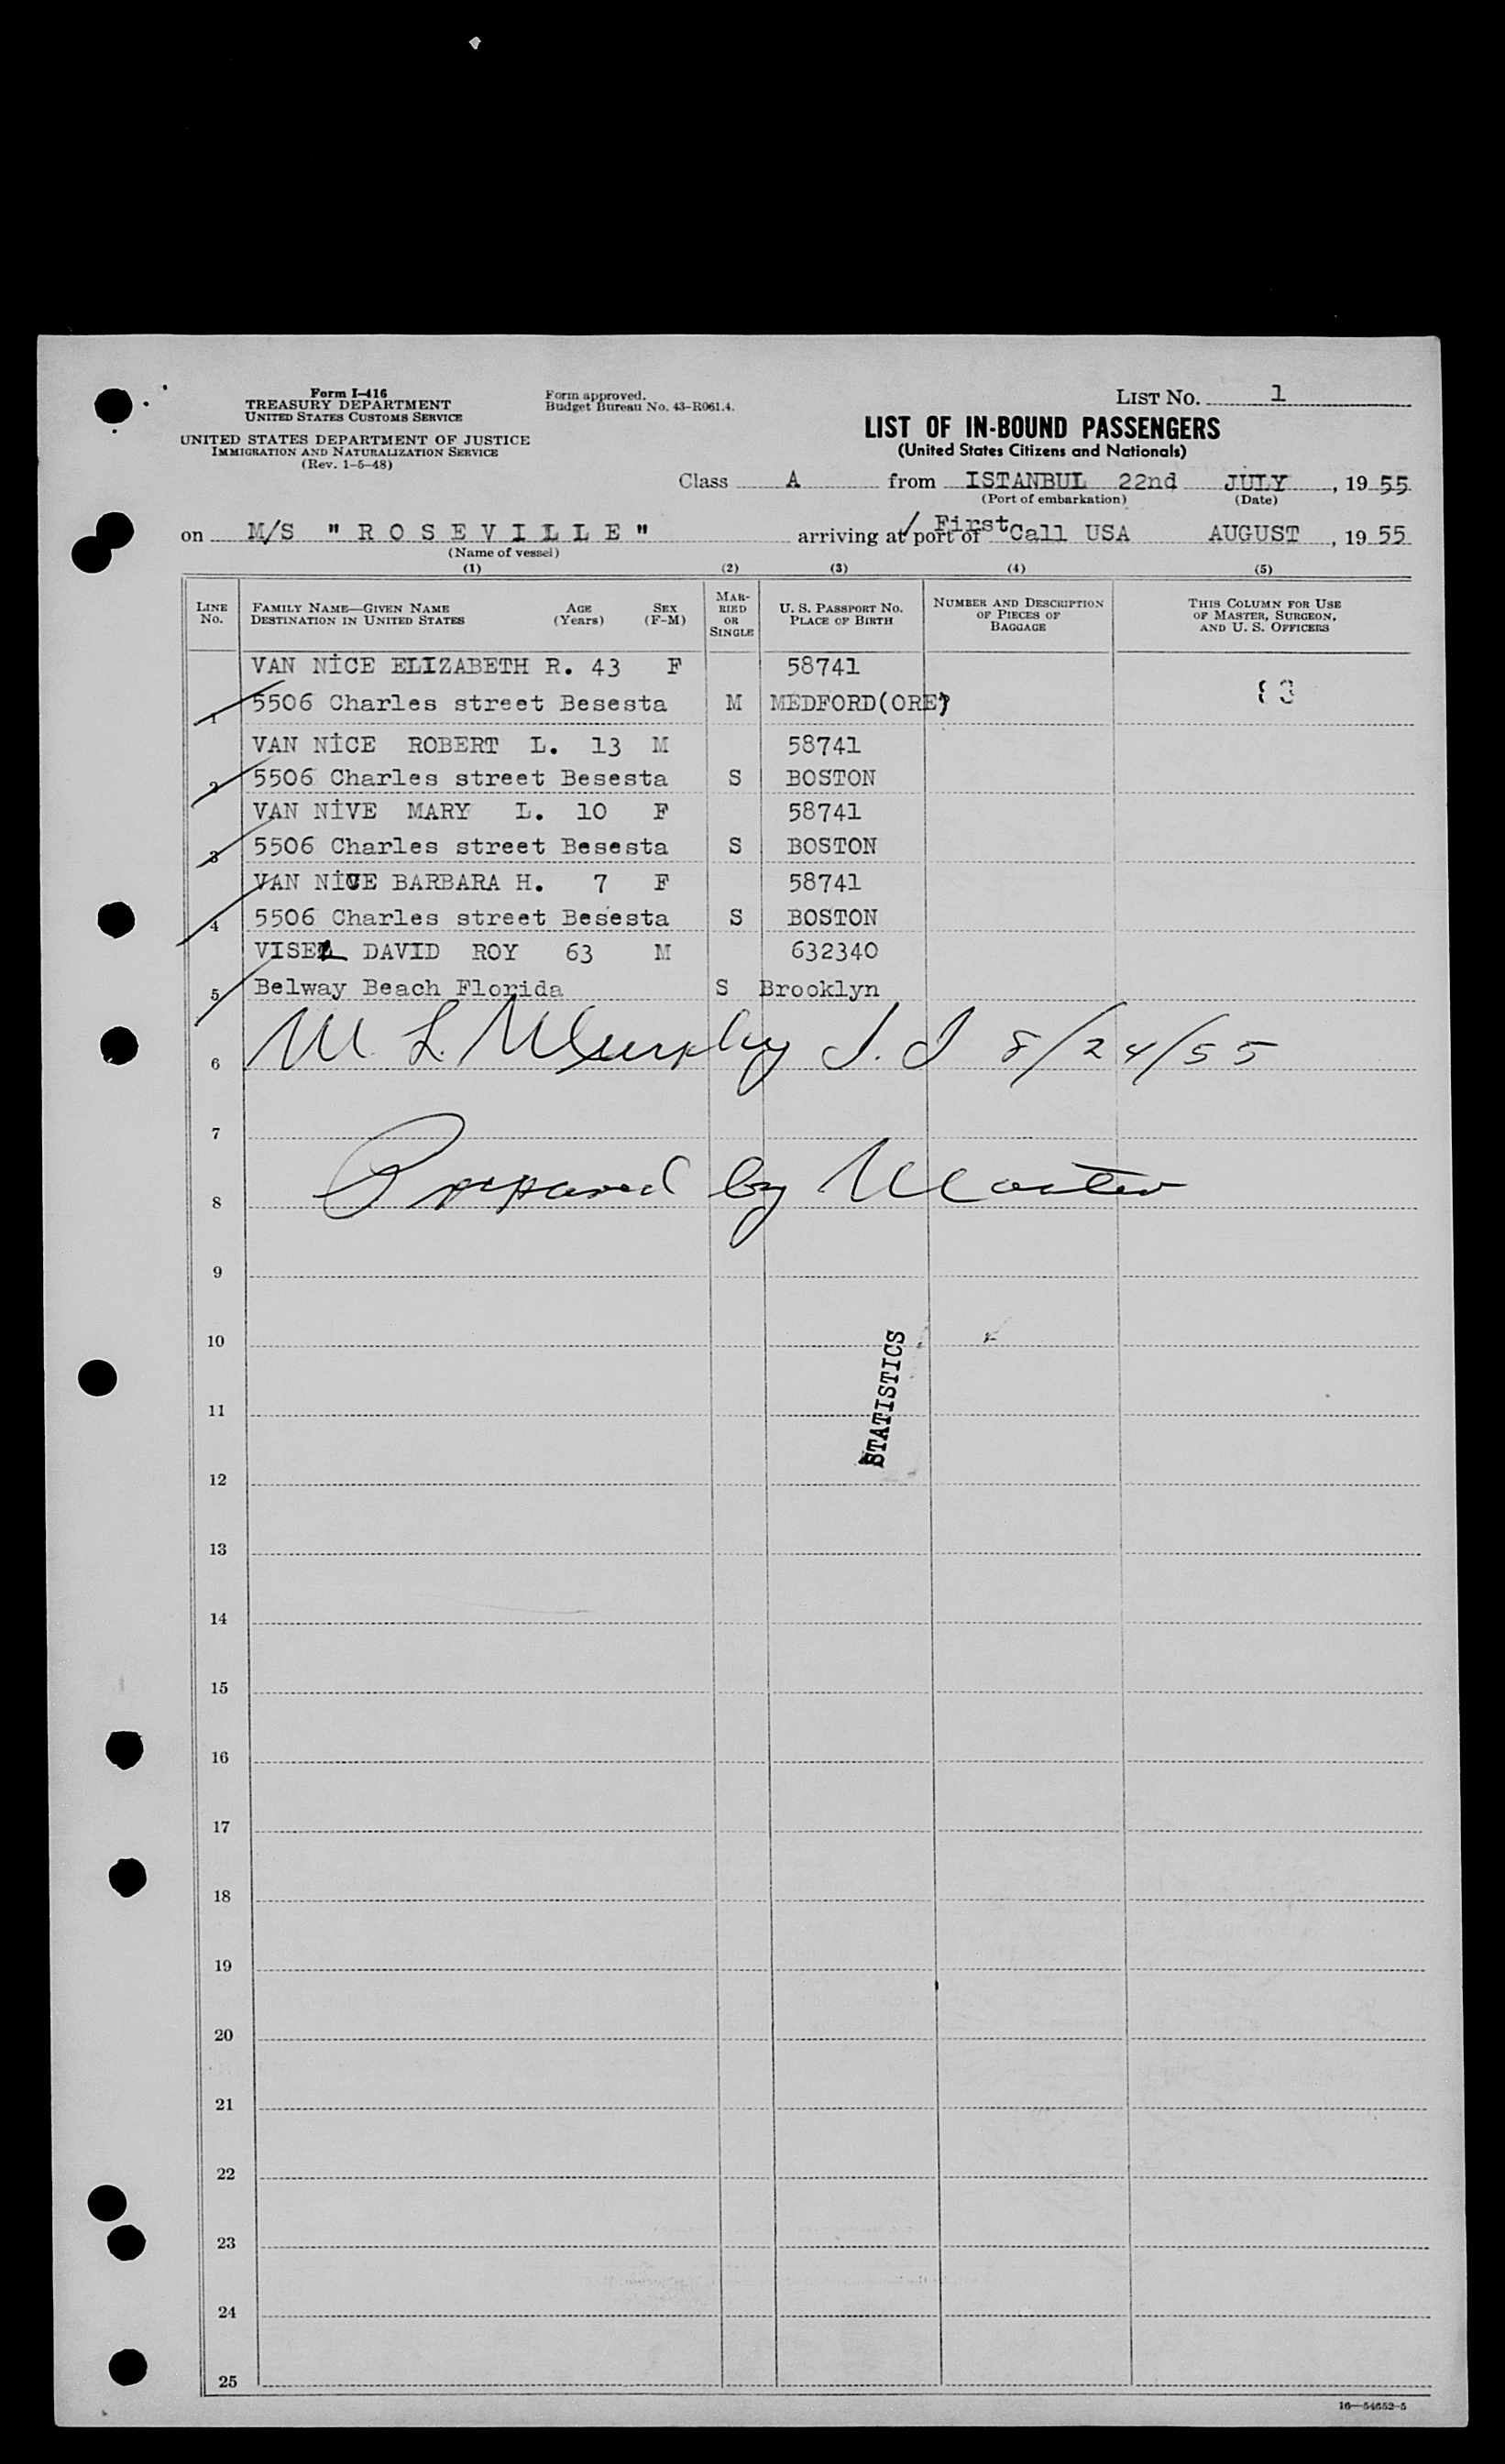 Form I-416
TREASURY DEPARTMENT
UNITED STATES CUSTOMS SERVICE
UNITED STATES DEPARTMENT OF JUSTICE
IMMIGRATION AND NATURALIZATION SERVICE
(Rev. 1-5-48)
Form approved.
Budget Bureau No. 43-R061.4.
LIST NO. 1
LIST OF IN-BOUND PASSENGERS
(United States Citizens and Nationals)
Class A from ISTANBUL 22nd JULY, 1955
(Port of embarkation) (Date)
on M/S "ROSEVILLE" arriving at / port of First Call USA AUGUST, 1955
(Name of vessel)
(1) (2) (3) (4) (5)
LINE NO.
FAMILY NAME—GIVEN NAME AGE SEX
DESTINATION IN UNITED STATES (Years) (F-M)
MARRIED OR SINGLE
U. S. PASSPORT NO.
PLACE OF BIRTH
NUMBER AND DESCRIPTION
OF PIECES OF
BAGGAGE
THIS COLUMN FOR USE
OF MASTER, SURGEON,
AND U. S. OFFICERS
VAN NİCE ELIZABETH R. 43 F 58741
1 5506 Charles street Besesta M MEDFORD(ORE)
VAN NİCE ROBERT L. 13 M 58741
2 5506 Charles street Besesta S BOSTON
VAN NİVE MARY L. 10 F 58741
3 5506 Charles street Besesta S BOSTON
VAN NİCE BARBARA H. 7 F 58741
4 5506 Charles street Besesta S BOSTON
VISEL DAVID ROY 63 M 632340
5 Belway Beach Florida S Brooklyn
6 M L. Murphy I.I 8/24/55
7
8 Prepared by Master
9
10
STATISTICS
11
12
13
14
15
16
17
18
19
20
21
22
23
24
25
16—54652-5